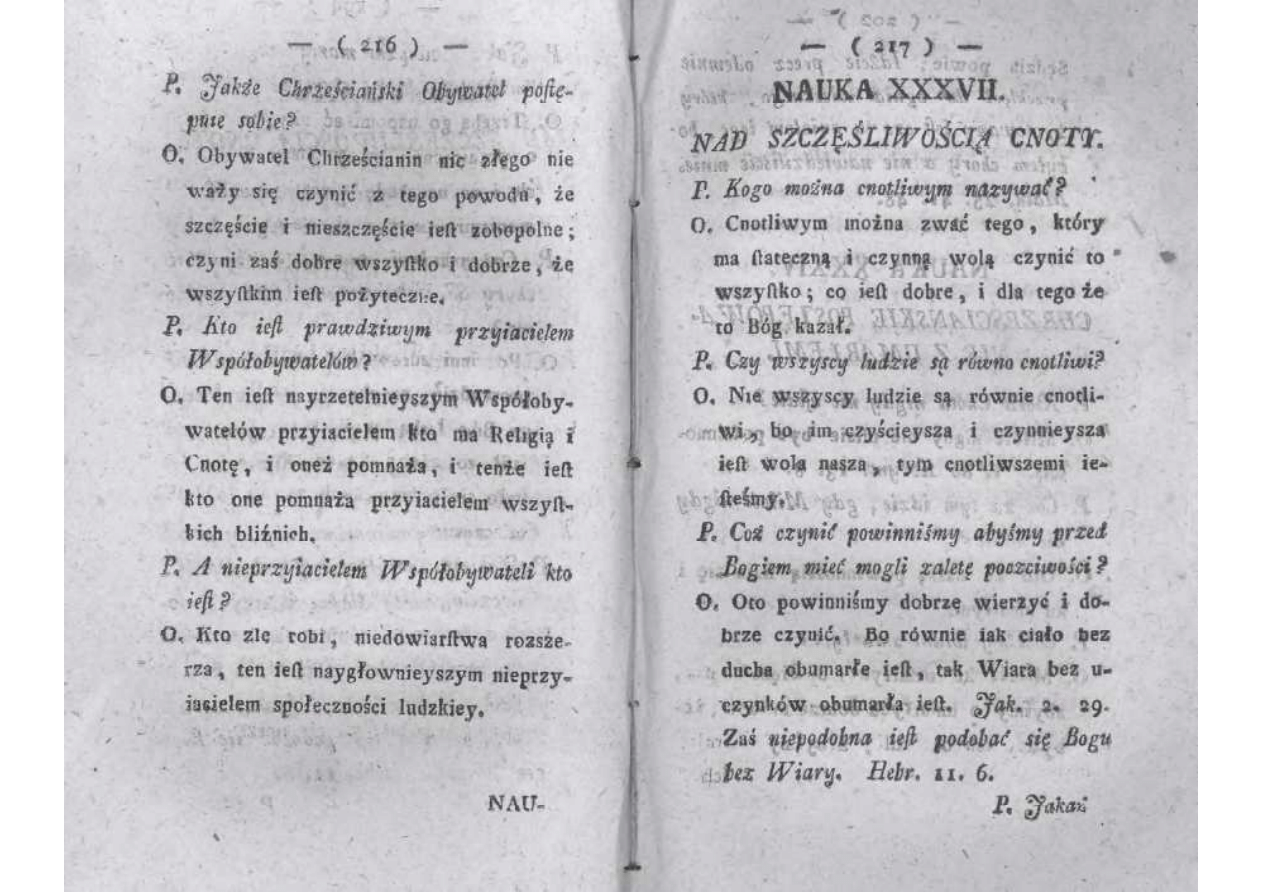 — ( 216 ) —
P. Jakże Chrześciański Obywatel poſtę-
puie sobie?
O. Obywatel Chrześcianin nic złego nie
waży się czynić z tego powodu, że
szczęście i nieszczęście ieſt zobopolne;
czyni zaś dobre wszyſtko i dobrze, że
wszyſtkim ieſt pożyteczne.
P. Kto ieſt prawdziwym przyiacielem
Współobywatelów?
O. Ten ieſt nayrzetelnieyszym Współoby-
watelów przyiacielem kto ma Religią i
Cnotę, i oneż pomnaża, i tenże ieſt
kto one pomnaża przyiacielem wszyſt-
kich bliźnich.
P. A nieprzyiacielem Współobywateli kto
ieſt?
O. Kto zle robi, niedowiarſtwa rozsze-
rza, ten ieſt naygłownieyszym nieprzy-
iacielem społeczności ludzkiey.
NAU-
— ( 217 ) —
NAUKA XXXVII.
NAD SZCZĘŚLIWOŚCIĄ CNOTY.
P. Kogo można cnotliwym nazywać?
O. Cnotliwym można zwać tego, który
ma ſtateczną i czynną wolą czynić to
wszyſtko; co ieſt dobre, i dla tego że
to Bóg kazał.
P. Czy wszyscy ludzie są równo cnotliwi?
O. Nie wszyscy ludzie są równie cnotli-
wi, bo im czyścieysza i czynnieysza
ieſt wola nasza, tym cnotliwszemi ie-
ſteśmy.
P. Coż czynić powinniśmy abyśmy przed
Bogiem mieć mogli zaletę poczciwości?
O. Oto powinniśmy dobrze wierzyć i do-
brze czynić. Bo równie iak ciało bez
ducha obumarłe ieſt, tak Wiara bez u-
czynków obumarła ieſt. Jak. 2. 29.
Zaś niepodobna ieſt podobać się Bogu
bez Wiary. Hebr. 11. 6.
P. Jakaż